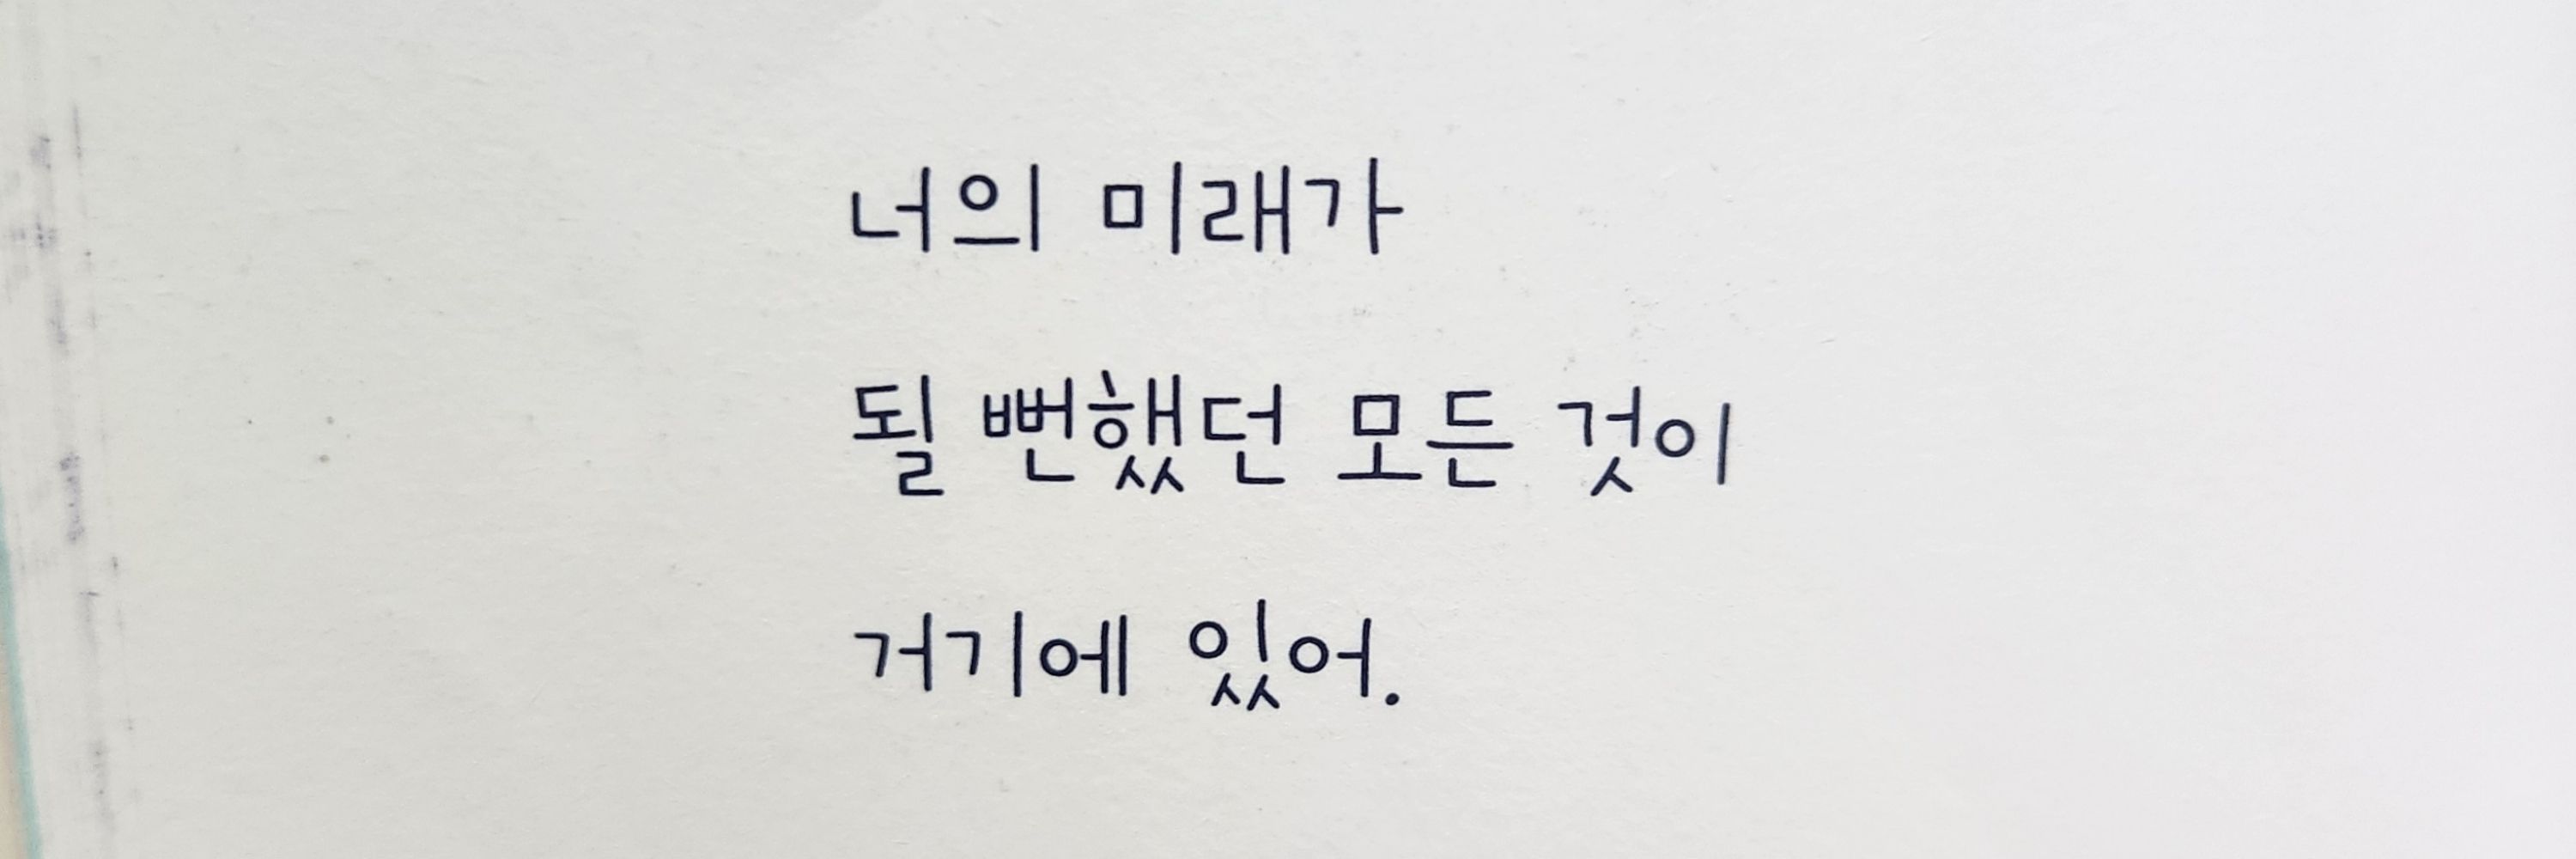 너의 미래가
될 뻔했던 모든 것이
거기에 있어.